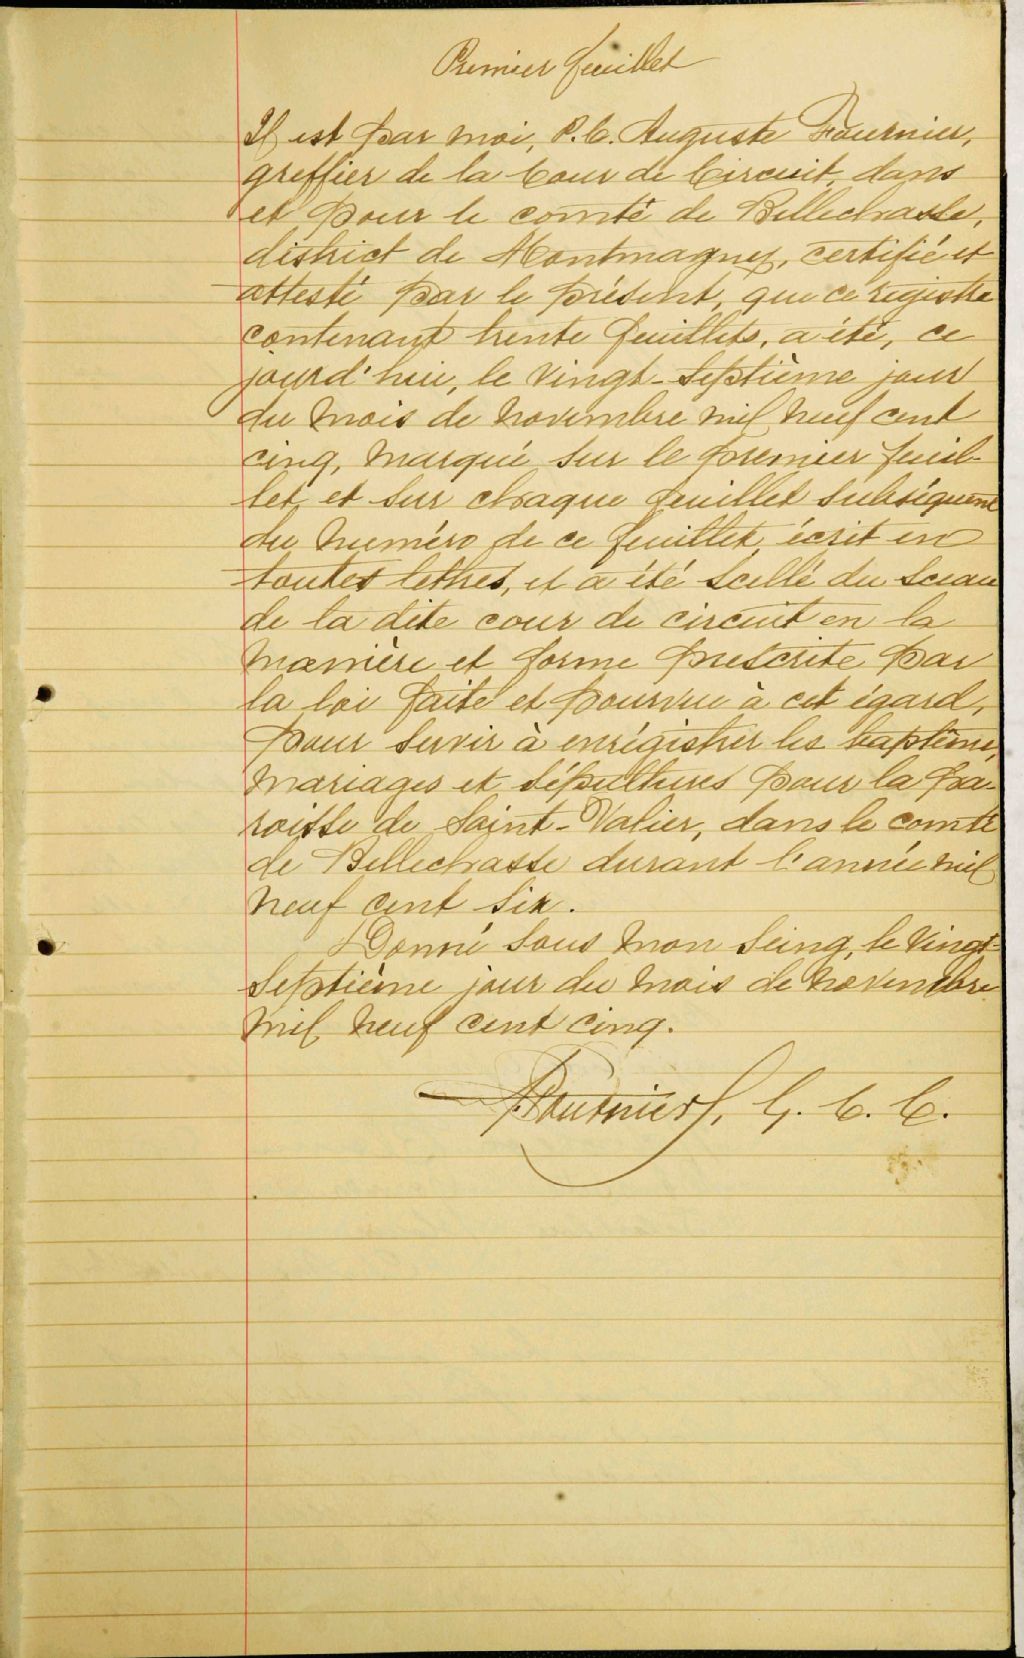 Premier feuillet
Il est par moi, P. C. Auguste Fournier,
greffier de la Cour de Circuit, dans
et pour le comté de Bellechasse,
district de Montmagny, certifié et
attesté par le présent, que ce régistre
contenant trente feuillets, a été, ce
jourd'hui, le vingt-septième jour
du mois de novembre mil neuf cent
cinq, marqué sur le premier feuil-
let et sur chaque feuillet subséquent
du numéro de ce feuillet, écrit en
toutes lettres, et a été scellé du sceau
de la dite cour de circuit en la
manière et forme prescrite par
la loi faite et pourvue à cet égard,
pour servir à enrégistrer les baptêmes,
mariages et sépultures pour la pa-
roisse de Saint-Valier, dans le comté
de Bellechasse durant l'année mil
neuf cent six.
Donné sous mon seing, le vingt-
septième jour du mois de novembre
mil neuf cent cinq.
A. Fournier, G. C. C.